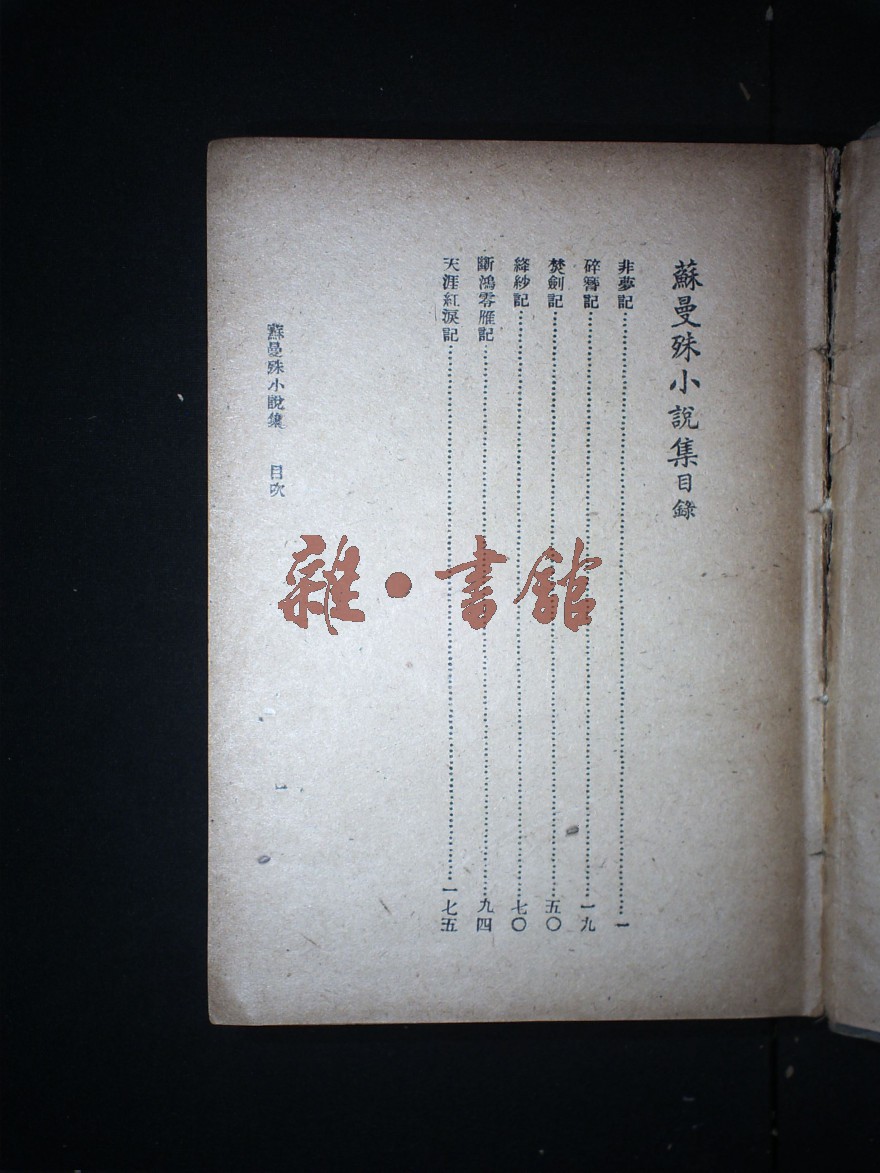 蘇曼殊小說集目錄
非夢記……一
碎簪記……一九
焚劍記……五〇
絳紗記……七〇
斷鴻零雁記……九四
天涯紅淚記……一七五
蘇曼殊小說集 目次
一
雜·書館